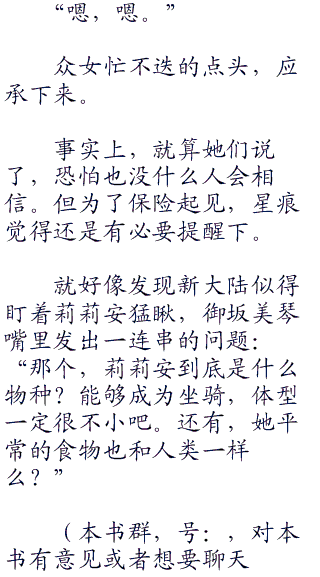 “嗯，嗯。”
众女忙不迭的点头，应
承下来。
事实上，就算她们说
了，恐怕也没什么人会相
信。但为了保险起见，星痕
觉得还是有必要提醒下。
就好像发现新大陆似得
盯着莉莉安猛瞅，御坂美琴
嘴里发出一连串的问题：
“那个，莉莉安到底是什么
物种？能够成为坐骑，体型
一定很不小吧。还有，她平
常的食物也和人类一样
么？”
（本书群，号：，对本
书有意见或者想要聊天